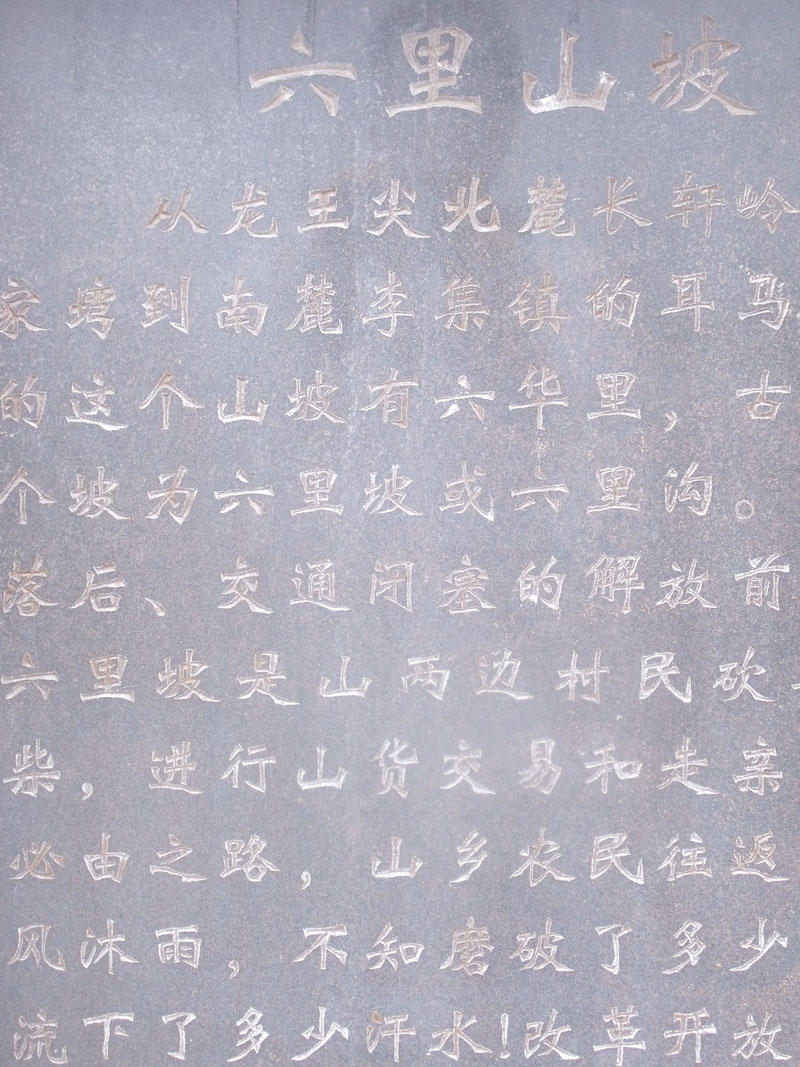 六里山坡
从龙王尖北麓长轩岭
家塆到南麓李集镇的耳马
的这个山坡有六华里，古
个坡为六里坡或六里沟。
落后、交通闭塞的解放前
六里坡是山两边村民砍
柴，进行山货交易和走亲
必由之路，山乡农民往返
风沐雨，不知磨破了多少
流下了多少汗水！改革开放